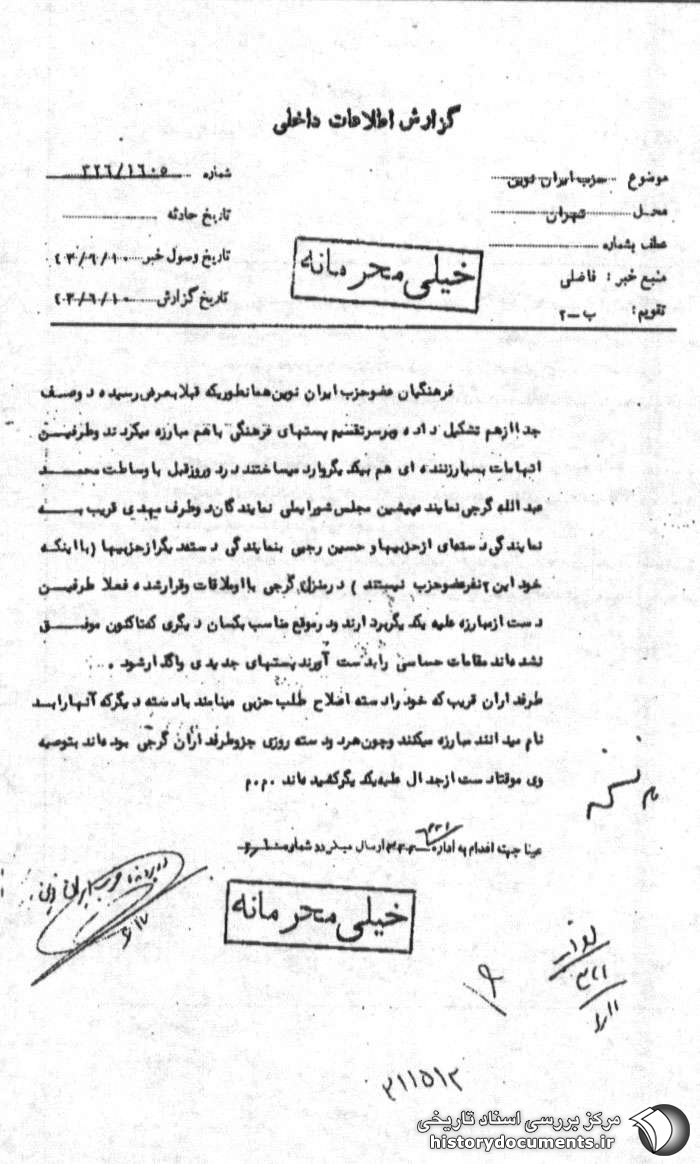 گزارش اطلاعات داخلی
موضوع حزب ایران نوین
شماره ۳۲۶/۱۶۰۵
محل تهران
تاریخ حادثه
عطف بشماره
تاریخ وصول خبر ۴۳/۶/۱۰
منبع خبر : فاضلی
تاریخ گزارش ۴۳/۶/۱۰
تقویم : ب - ۲
خیلی محرمانه
فرهنگیان عضو حزب ایران نوین همانطوریکه قبلا بعرض رسیده دو صف
جدا از هم تشکیل داده و بر سر تقسیم پستهای فرهنگی با هم مبارزه میکردند و طرفیـن
اتهامات بسیار زننده ای هم بیکدیگر وارد میساختند در دو روز قبل با وساطت محمـد
عبدالله گرجی نماینده پیشین مجلس شورایملی نمایندگان دو طرف مهدی قریب بـه
نمایندگی دسته‌ای از حزبیها و حسین رجبی بنمایندگی دسته دیگر از حزبیها (با اینکـه
خود این ۲ نفر عضو حزب نیستند ) در منزل گرجی با او ملاقات و قرار شده فعلا طرفیـن
دست از مبارزه علیه یکدیگر بردارند و در موقع مناسب بکسان دیگری که تاکنون موفـق
نشده‌اند مقامات حساسی را بدست آورند پستهای جدیدی واگذار شود .
طرفداران قریب که خود را دسته اصلاح طلب حزبی مینامند با دسته دیگر که آنها را بـد
نام میدانند مبارزه میکنند و چون هر دو دسته روزی جزو طرفداران گرجی بوده‌اند بتوصیه
وی موقتا دست از جدال علیه یکدیگر کشیده‌اند . م.م
عینا جهت اقدام به اداره ارسال میگردد شماره
خیلی محرمانه
۳۲۱
۳۱۱۵۱۲
مرکز بررسی اسناد تاریخی
historydocuments.ir